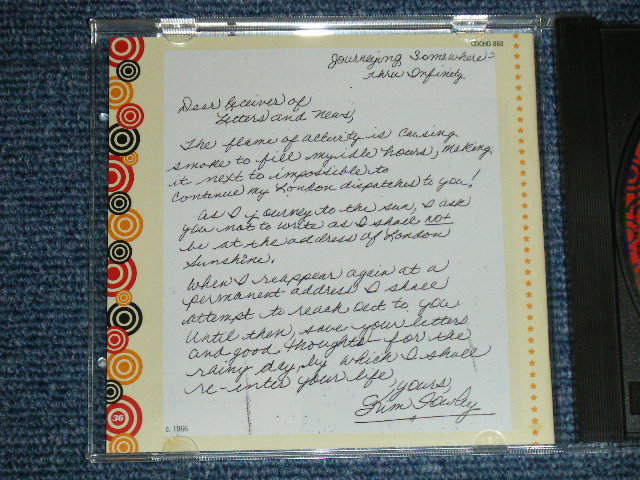 CDCHD 888
Journeying Somewhere
Thru Infinity
Dear Receiver of
Letters and News,
The flame of activity is causing
smoke to fill my idle hours, making
it next to impossible to
continue my London dispatches to you!
As I journey to the sun, I ask
you not to write as I shall not
be at the address of London
Sunshine.
When I reappear again at a
permanent address I shall
attempt to reach out to you
Until then, save your letters
and good thoughts for the
rainy day, by which I shall
re-enter your life
yours,
Kim Fowley
36
36
c. 1966